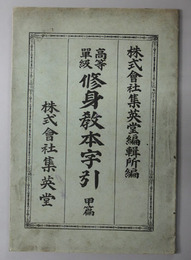 株式會社集英堂編輯所編
高等
單級
修身敎本字引
甲篇
株式會社集英堂